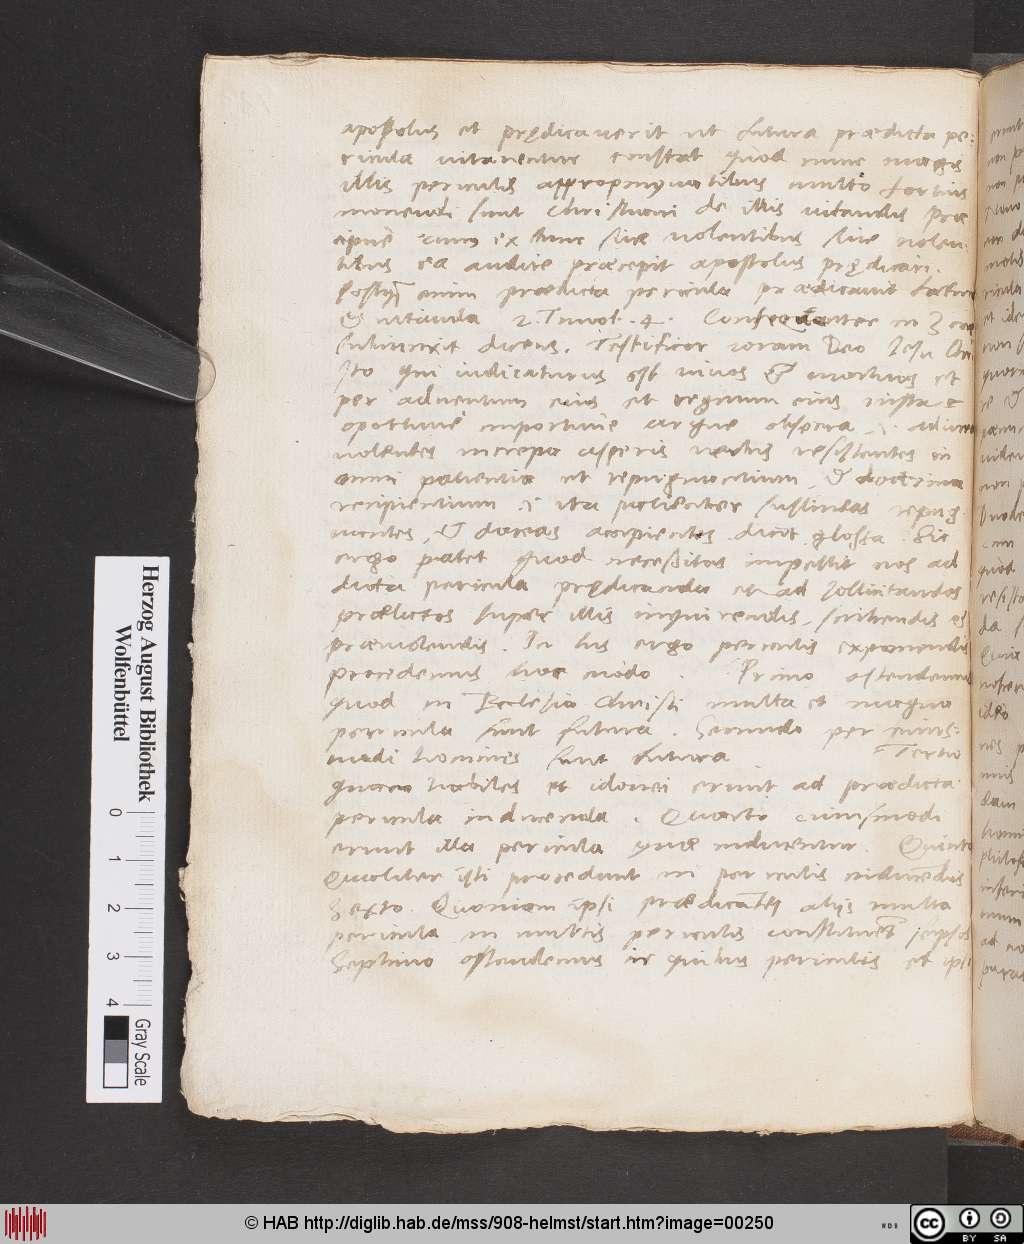 apostolus et prędicaverit ut futura prædicta pe-
ricula vitarentur constat quod nunc magis
illis periculis appropinquantibus multo fortius
monendi sunt Christiani de illis vitandis præ
cipuè cum ex tunc sive volentibus sive nolen
tibus ea audire præcepit apostolus prędicari.
enim prædicta pericula prædicavit
& vitanda 2. Timot. 4. Consequenter in 3
dicens. Testificor coram Deo Jesu Chri
sto qui iudicaturus est vivos & mortuos et
per adventum eius et regnum eius insta
opottunè importunè argue obsecra .i. adiura
volentes increpa asperis verbis resistentes in
omni patientia et repugnantium & doctrina
recipientium .i. ita patienter sustineas repug
nantes, & doceas accipientes dicit glossa. Sic
ergo patet quod necessitas impellit nos ad
dicta pericula prędicanda et ad sollicitandos
prælatos super illis inquirendis, scribendis et
præmolendis. In his ergo periculis exponendis
procedemus hoc modo. Primo ostendemus
quod in Ecclesia Christi multa et magna
pericula sunt futura. Secundo per cuius-
modi homines sunt futura Tertio
quam habiles et idonei erunt ad prædicta
pericula inducenda. Quarto cuiusmodi
erunt illa pericula quæ inducentur. Quinto
Qualiter isti procedunt in periculis inducendis
Sexto. Quoniam ipsi prædicantes alijs multa
pericula in multis periculis constituent seipsos
Septimo ostendemus in quibus periculis et ipsi
Herzog August Bibliothek
Wolfenbüttel
0 1 2 3 4
Gray Scale
© HAB http://diglib.hab.de/mss/908-helmst/start.htm?image=00250
WDB
cc BY SA